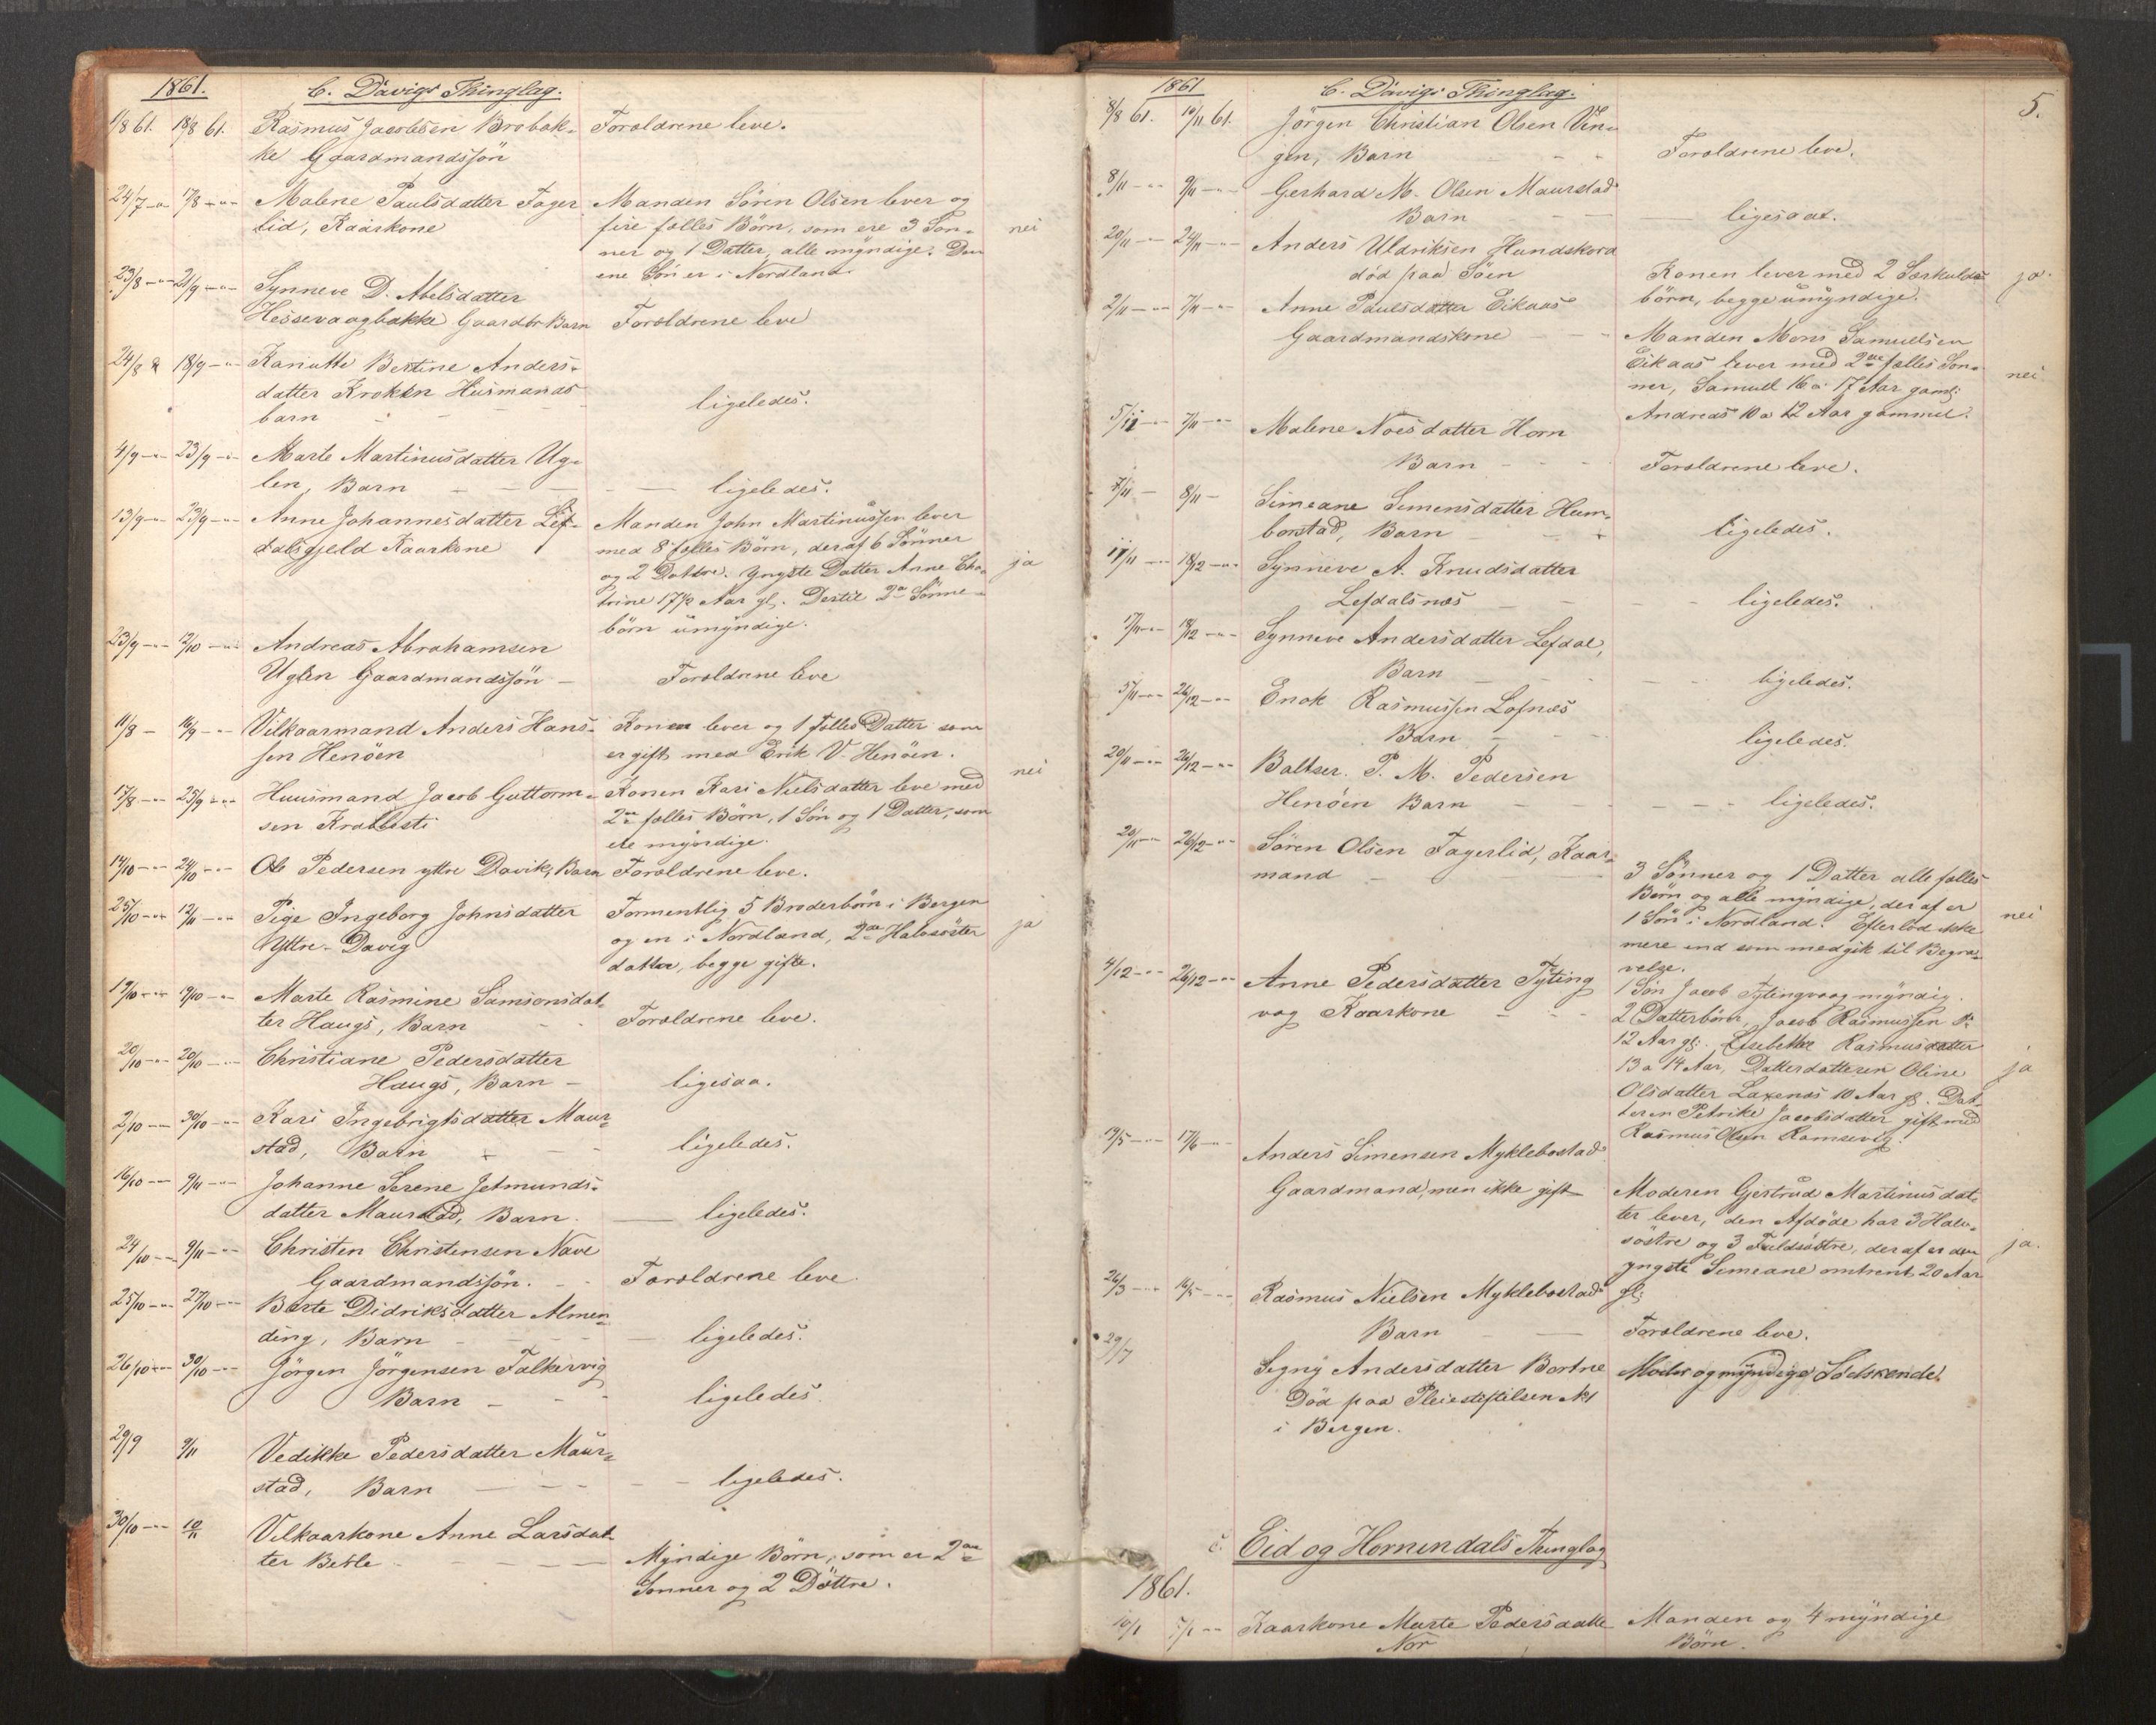 1861.
C. Davigs Thinglag.
1/8 61. 18/8 61. Rasmus Jacobsen Brobak- Forældrene leve.
ke Gaardmandssön
24/7 -"- 17/8 -"- Malene Paulsdatter Fager Manden Sören Olsen lever og
lid, Kaarkone fire fælles Börn, som ere 3 Son- nei
ner og 1 Datter, alle myndige. Den
ene Sön er i Nordland.
23/8 -"- 21/9 -"- Synneve D. Abelsdatter
Hessevaagbakke Gaardbr Barn Forældrene leve
24/8 18/9 -"- Hanutte Bertine Anders-
datter Kroken Husmands
barn ligeledes.
4/9 -"- 23/9 -"- Marte Martinusdatter Ug-
len, Barn ligeledes.
13/9 -"- 23/9 -"- Anne Johannesdatter Lef- Manden John Martinussen lever
dalsgjeld Kaarkone med 8 fælles Börn, deraf 6 Sönner
og 2 Dottre. Yngste Datter Anne Cha- ja
trine 17½ Aar gl. Dertil 2de Sönne-
börn umyndige.
23/9 -"- 12/10 -"- Andreas Abrahamsen
Uglen Gaardmandssön - Forældrene leve
11/8 - 16/9 -"- Vilkaarmand Anders Hans- Konen lever og 1 Fælles Datter som
sen Henöen er gift med Erik V. Henöen.
nei
17/8 -"- 25/9 -"- Huusmand Jacob Guttorm- Konen Kari Nielsdatter leve med
sen Krabbesti 2de fælles Börn, 1 Sön og 1 Datter, som
ere myndige.
14/10 -"- 24/10 -"- Ole Pedersen yttre Davik, Barn Forældrene leve.
25/10 -"- 12/11 -"- Pige Ingeborg Johnsdatter Formentlig 5 Broderbörn i Bergen
Yttre-Davig og en i Nordland, 2de Halvsöster ja
dattre, begge gifte.
19/10 -"- 19/10 -"- Marte Rasmine Samsonsdat-
ter Haugs, Barn Forældrene leve.
20/10 -"- 20/10 -"- Christiane Pedersdatter
Haugs, Barn - ligesaa.
2/10 -"- 30/10 -"- Kari Ingebrigtsdatter Maur-
stad, Barn ligeledes.
16/10 -"- 9/11 -"- Johanne Serene Jetmunds-
datter Maurstad, Barn. ligeledes.
24/10 -"- 9/11 -"- Christen Christensen Nave
Gaardmandssön. Forældrene leve.
25/10 -"- 27/10 -"- Berte Didriksdatter Almen-
ding, Barn ligeledes.
26/10 -"- 30/10 -"- Jörgen Jörgensen Falkevig
Barn ligeledes.
29/9 9/11 Vedikke Pedersdatter Maur-
stad, Barn ligeledes.
30/10 -"- 10/11 Vilkaarkone Anne Larsdat
ter Betle Myndige Börn, som er 2de
Sonner og 2 Döttre.
1861
C. Davigs Thinglag.
5.
8/8 61. 10/11 61. Jörgen Christian Olsen Vin-
gen, Barn Forældrene leve.
8/11 -"- 9/11 -"- Gerhard M. Olsen Maurstad
Barn ligesaa.
20/11 -"- 24/11 -"- Anders Uldriksen Hundskord
död paa Söen Konen lever med 2 Særkulds- ja.
börn, begge umyndige.
2/11 -"- 7/11 -"- Anne Paulsdatter Eikaas
Gaardmandskone Manden Mons Samuelsen
Eikaas lever med 2de fælles Son-
ner, Samuel 16 a 17 Aar gaml: nei
Andreas 10 a 12 Aar gammel.
5/11 -"- 7/11 -"- Malene Noesdatter Horn
Barn Forældrene leve.
7/11 - 8/11 - Simeane Simensdatter Hum-
borstad, Barn ligeledes.
11/11 -"- 18/12 -"- Synneve A. Knudsdatter
Lefdalsnæs ligeledes.
17/11 -"- 18/12 -"- Synneve Andersdatter Lefdal,
Barn ligeledes.
5/11 -"- 26/12 -"- Enok Rasmussen Lofnæs
Barn ligeledes.
20/11 -"- 26/12 -"- Baltser. P. M. Pedersen
Henöen Barn ligeledes.
20/11 -"- 26/12 -"- Sören Olsen Fagerlid, Kaar-
mand 3 Sönner og 1 Datter alle fælles
Börn og alle myndige, deraf er
1 Sön i Nordland. Efterlod ikke nei
mere end som medgik til Begra-
velse.
4/12 -"- 26/12 -"- Anne Pedersdatter Tyting
vag Kaarkone 1 Sön Jacob Tytingvaag myndig.
2 Datterbörn, Jacob Rasmussen
12 Aar gl. Elsebethe Rasmusdatter
13 a 14 Aar, Datterdatteren Oline ja
Olsdatter Laxenæs 10 Aar gl. Dat-
teren Petrike Jacobsdatter gift med
Rasmus Olsen Ramsevig.
19/5 -"- 17/6 -"- Anders Simensen Myklebostad
Gaardmand, men ikke gift Moderen Gjertrud Martinusdat-
ter lever, den Afdöde har 3 Halv-
söstre og 3 Fuldsöstre, deraf er den ja.
yngste Simeane omtrent 20 Aar
gl:
26/3 -"- 16/5 -"- Rasmus Nielsen Myklebostad
Barn Forældrene leve.
29/7 Segny Andersdatter Bortne Moder og myndige Södskende.
Död paa Pleiestiftelsen No 1
i Bergen.
c. Eid og Hornindals Thinglag
1861.
10/1 5/1 -"- Kaarkone Marte Pedersdatte Manden og 4 myndige
Nor Börn.